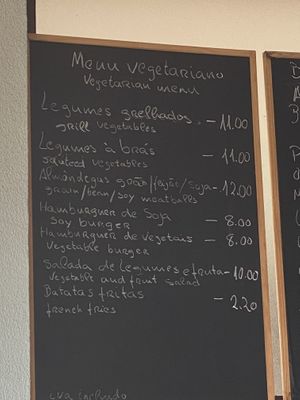 Menu vegetariano
Vegetarian menu
Legumes grelhados. - 11.00
grill vegetables
Legumes à brás - 11.00
sauteed vegetables
Almôndegas grão/feijão/soja - 12.00
grain/bean/soy meatballs
Hamburguer de Soja - 8.00
soy burger
Hamburguer de vegetais - 8.00
vegetable burger
Salada de Legumes e fruta - 10.00
vegetable and fruit salad
Batatas fritas - 2.20
french fries
iva incluido